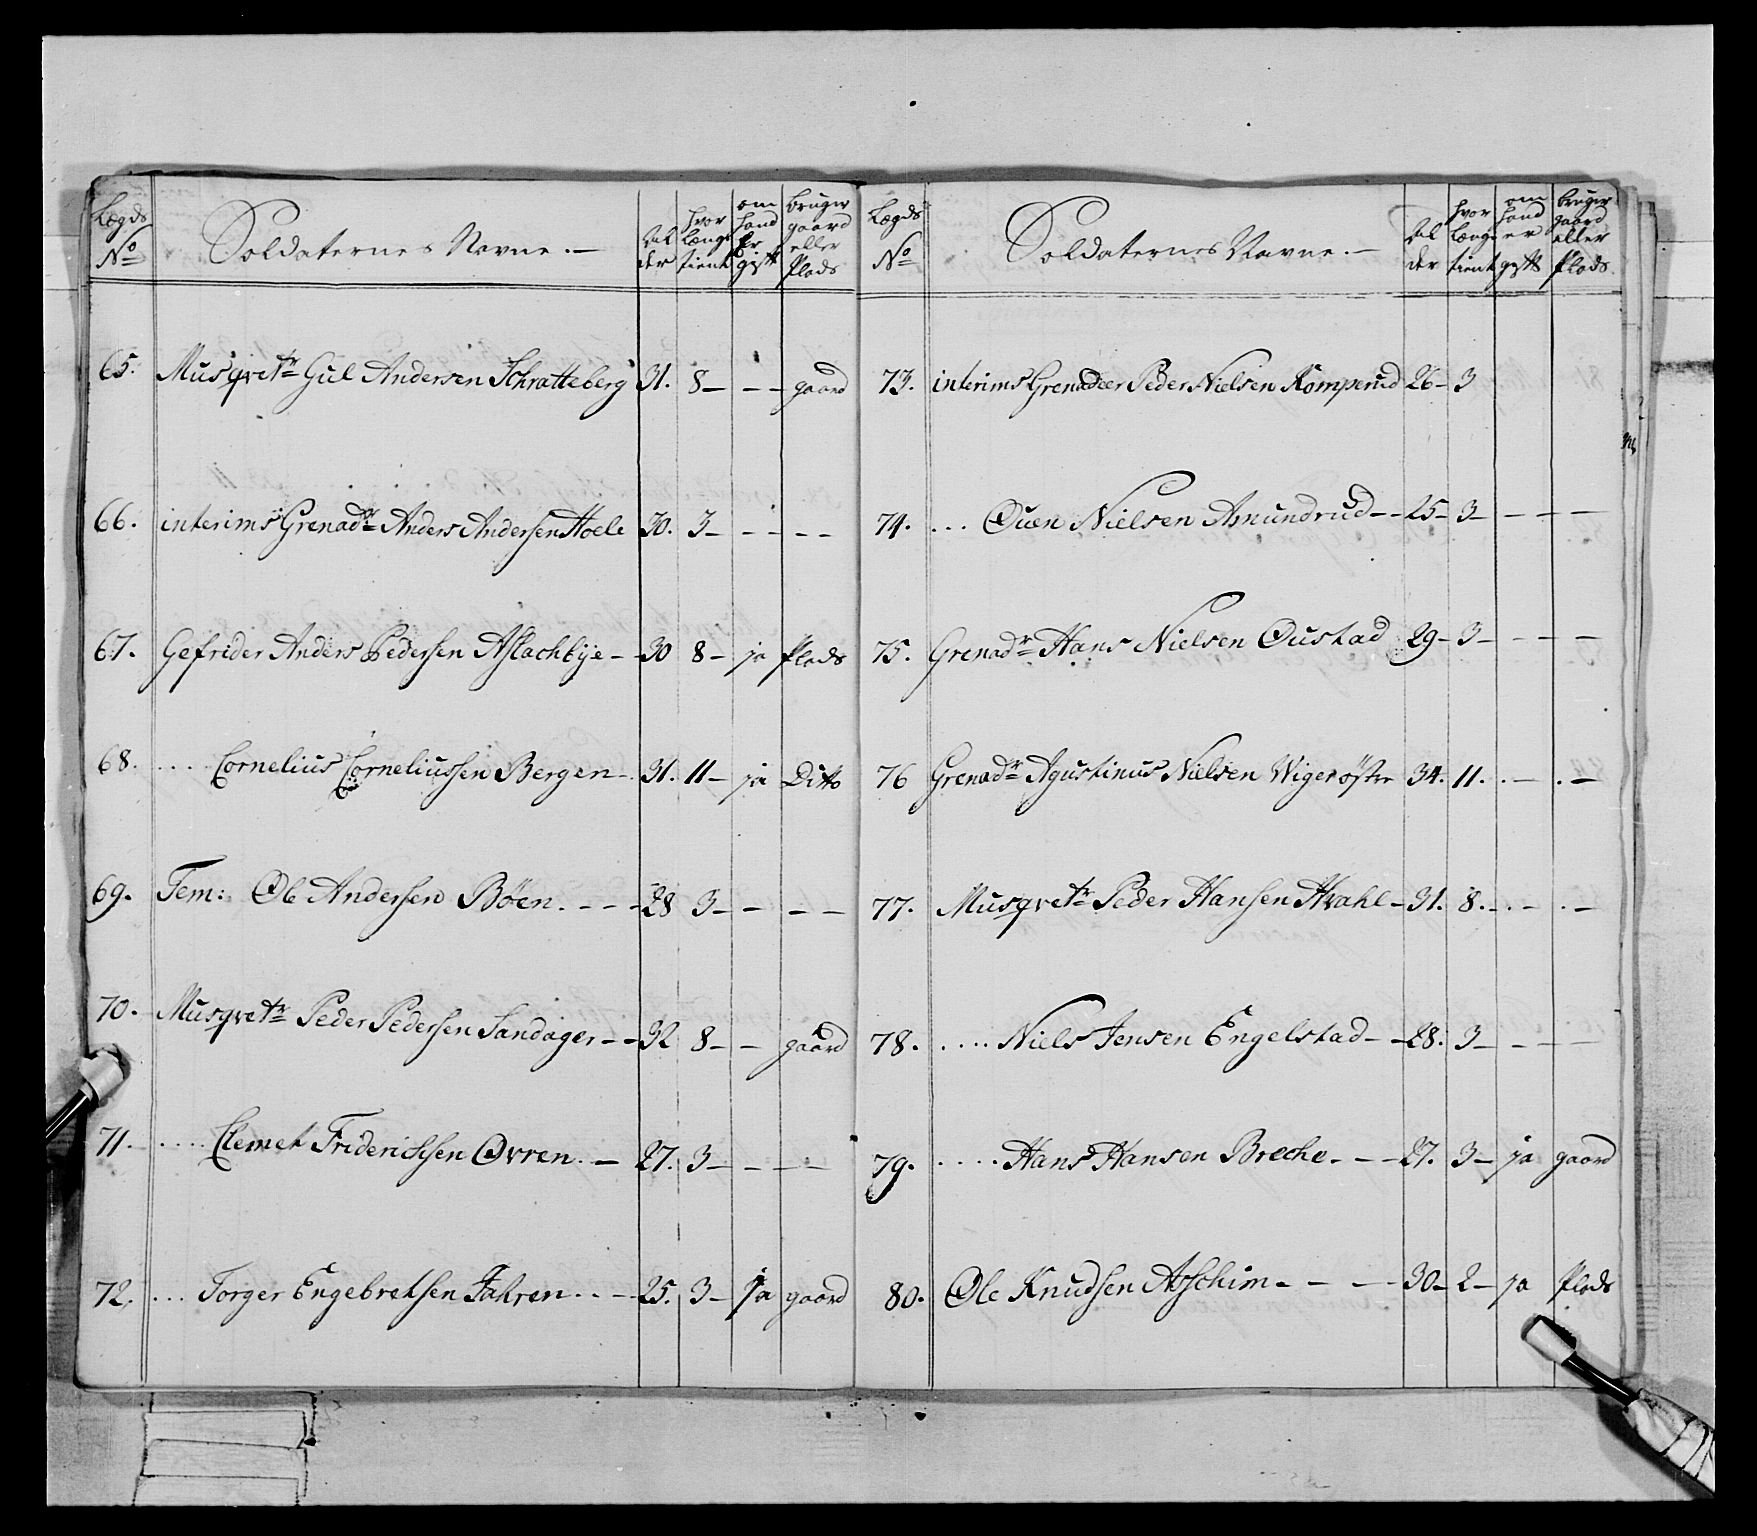 Lægds No Soldaternes Navne. Al der hvor længe tient om hand Er gift bruger gaard eller Plads
65. Musqvetr Gul Andersen Schratteberg 31. 8 – – – gaard
66. interims Grenadr Anders Andersen Hoele 30. 3 – – – – –
67. Gefrider Anders Pedersen Aslachbye – 30 8 – ja Plads
68. .... Cornelius Corneliussen Bergen – 31. 11 – ja Ditto
69. Tem: Ole Andersen Böen. – – – 28 3 – – – –
70. Musqvetr Peder Pedersen Sandager – – 32 8 – – gaard
71. .... Clemet Friderichsen Ovren. – 27. 3 – – – –
72. ... Torger Engebretsen Fahren. . – – 25. 3 – ja gaard
Lægds No Soldaternes Navne. – Al der hvor længe tient om hand er gift bruger gaard eller Plads.
73. interims Grenadeer Peder Nielsen Komperud 26 – 3
74. ... Ouen Nielsen Amundrud – – 25 – 3 – – – –
75. Grenadr Hans Nielsen Oustad 29 – 3 – – – –
76 Grenadr Agustinus Nielsen Wiger östre 34. 11. . – . –
77. Musqvetr Peder Hansen Hvahl – 31. 8. – . – . –
78. .... Niels Jensen Engelstad – – 28. 3 – – – –
79. .... Hans Hansen Breche. – – – 27. 3 – ja gaard
80. Ole Knudsen Aschim – – – – 30 – 2 – ja Plads